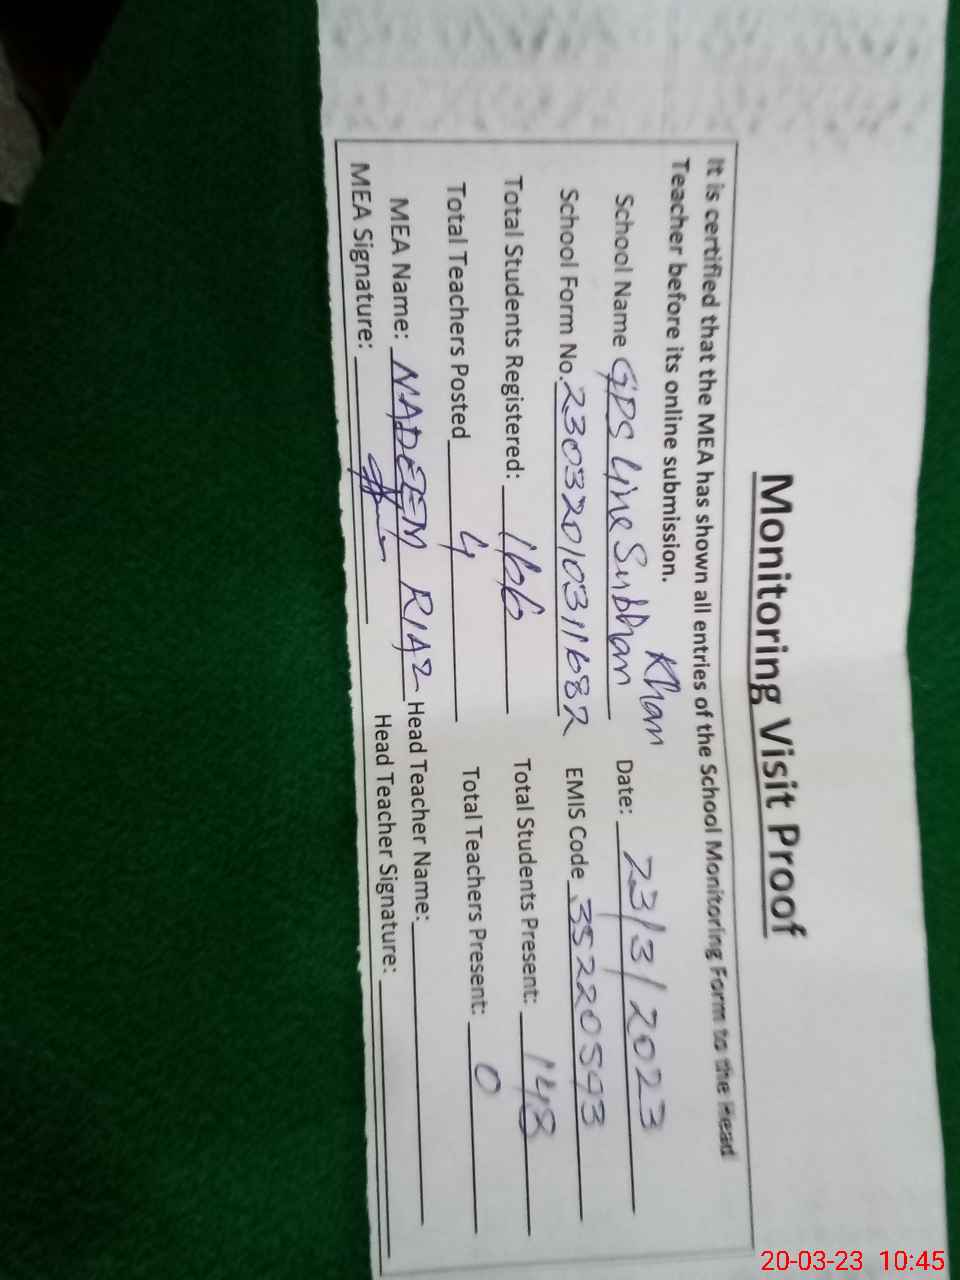 Monitoring Visit Proof
It is certified that the MEA has shown all entries of the School Monitoring Form to the Head
Teacher before its online submission.
School Name GPS Line Subhan Khan Date: 23/3/2023
School Form No. 23032010311682 EMIS Code 35220593
Total Students Registered: 166 Total Students Present: 148
Total Teachers Posted 4 Total Teachers Present: 0
MEA Name: NADEEM RIAZ Head Teacher Name:
MEA Signature: Head Teacher Signature:
20-03-23 10:45